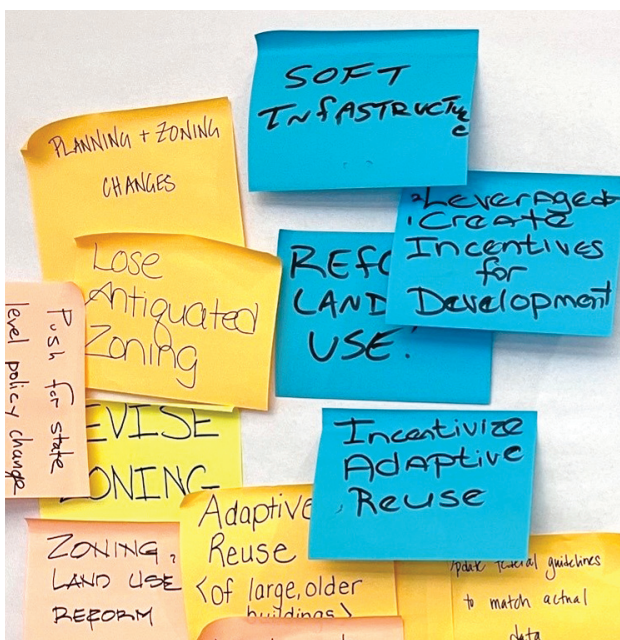 SOFT
INFASTRUCTURE
PLANNING + ZONING
CHANGES
Leverage &
Create
Incentives
for
Development
Lose
Antiquated
Zoning
REFO
LAND
USE!
Push for state
level policy change
EVISE
ONING
Incentivize
Adaptive
Reuse
Adaptive
Reuse
<of large, older
buildings>
ZONING,
LAND USE
REFORM
update federal guidelines
to match actual
data